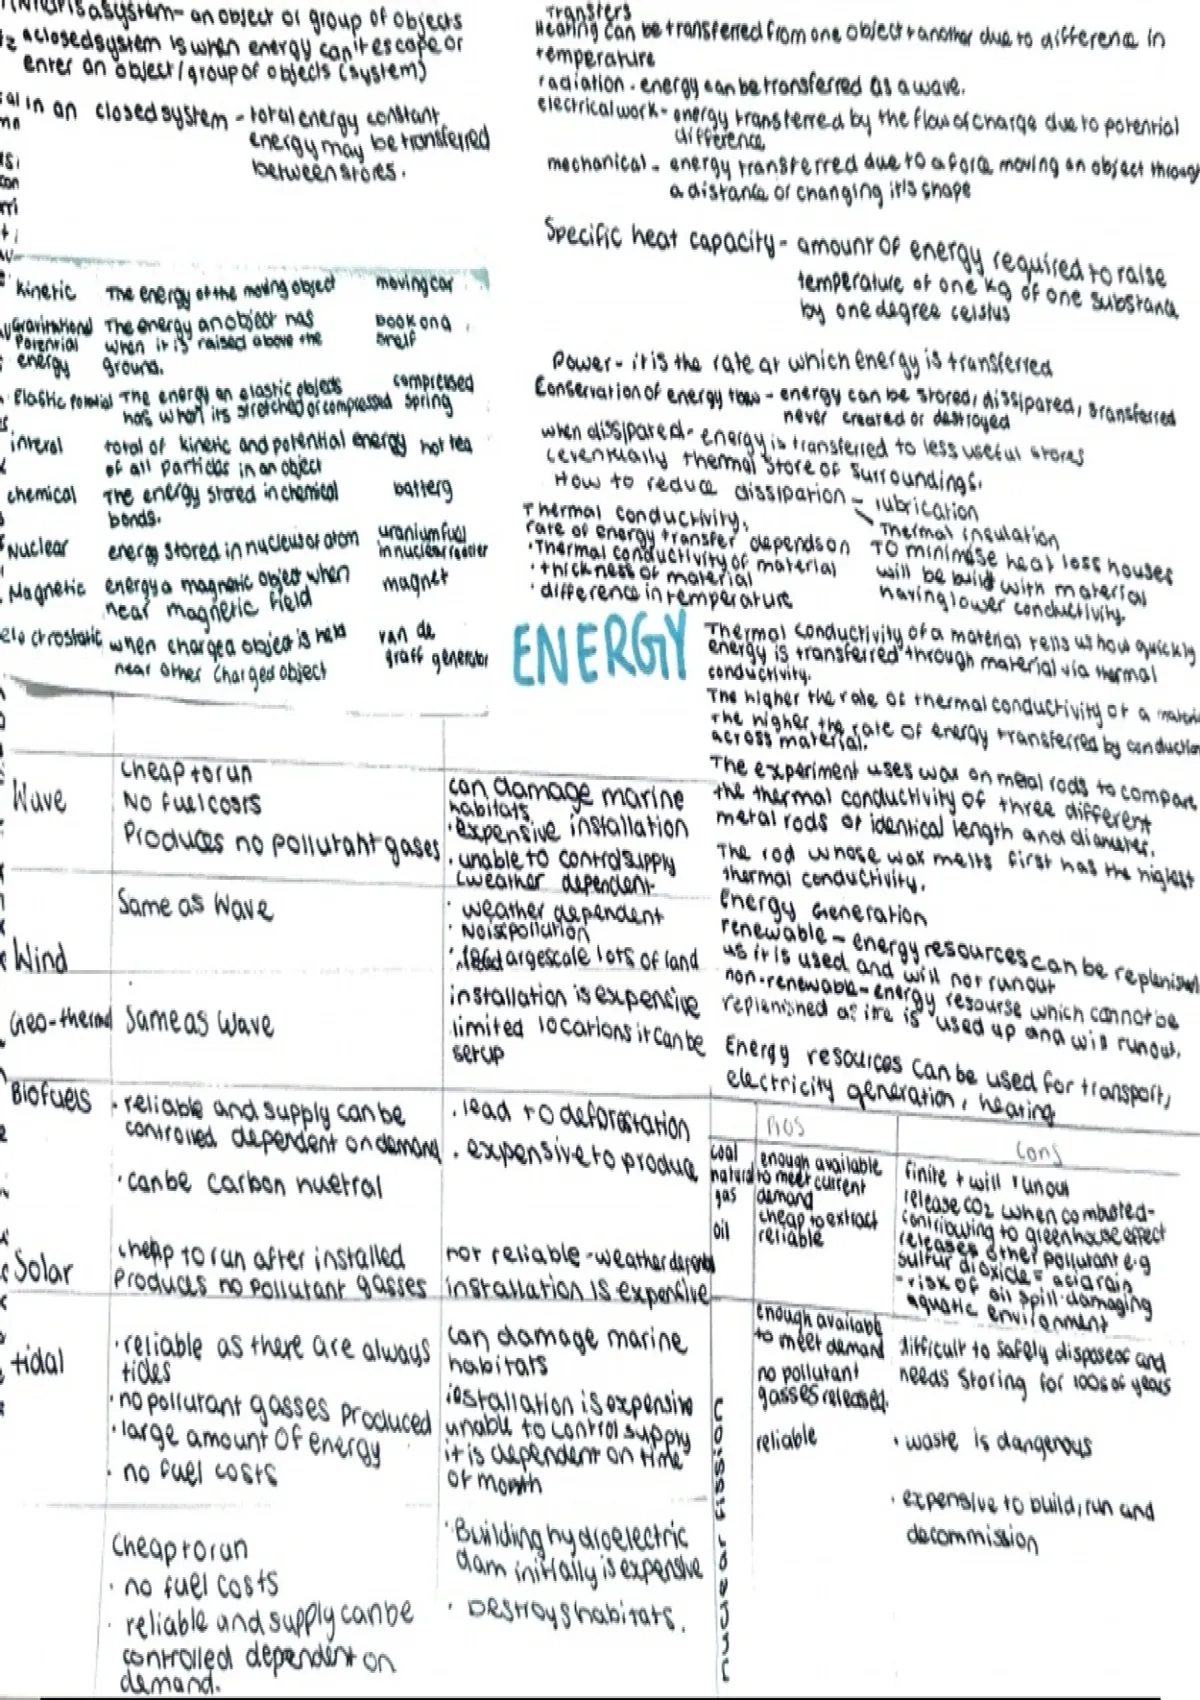 a system- an object or group of objects
a closed system is when energy can't escape or
enter an object/group of objects (system)
in an closed system - total energy constant
energy may be transferred
between stores.
Kinetic The energy of the moving object moving car
Gravitational The energy an object has book on a
Potential when it is raised above the shelf
energy ground.
Elastic The energy an elastic objects compressed
has when its stretched or compressed spring
interal total of kinetic and potential energy hot tea
of all particles in an object
chemical The energy stored in chemical batterg
bonds.
Nuclear energy stored in nucleus of atom uranium fuel
in nuclear reactor
Magnetic energy a magnetic object when magnet
near magnetic field
electrostatic when charged object is held van de
near other charged object graff generator
Transfers
Heating can be transferred from one object to another due to difference in
temperature
radiation - energy can be transferred as a wave.
electrical work - energy transferred by the flow of charge due to potential
difference
mechanical - energy transferred due to a force moving an object through
a distance or changing it's shape
Specific heat capacity - amount of energy required to raise
temperature of one kg of one substance
by one degree celsius
Power - it is the rate at which energy is transferred
Conservation of energy law - energy can be stored, dissipared, transferred
never created or destroyed
when dissipated - energy is transferred to less useful stores
(eventually thermal store of surroundings.
How to reduce dissipation - lubrication
Thermal insulation
Thermal conductivity,
rate of energy transfer depends on
·Thermal conductivity of material
· thickness of material
· difference in temperature
To minimise heat loss houses
will be build with material
having lower conductivity.
ENERGY
Thermal conductivity of a material tells us how quickly
energy is transferred through material via thermal
conductivity.
The higher the rate of thermal conductivity of a material
the higher the rate of energy transferred by conduction
across material.
The experiment uses wax on metal rods to compare
the thermal conductivity of three different
metal rods of identical length and diameter.
The rod whose wax melts first has the highest
thermal conductivity.
Energy Generation
renewable - energy resources can be replenished
as it is used and will not runout
non-renewable - energy resourse which cannot be
replenished as is used up and will runout.
Energy resources can be used for transport,
electricity generation, heating
Wave
Cheap to run
No fuel costs
Produces no pollutant gases
can damage marine
habitats
· expensive installation
· unable to control supply
(weather dependent
Wind
Same as Wave
· weather dependent
· Noise pollution
· large scale lots of land
Geo-thermal
Same as Wave
installation is expensive
limited locations it can be
setup
Biofuels
· reliable and supply can be
controlled dependent on demand
· can be carbon nuetral
· lead to deforestation
· expensive to produce
Solar
cheap to run after installed
Produces no pollutant gasses
not reliable - weather depend
installation is expensive
tidal
· reliable as there are always
tides
· no pollutant gasses produced
· large amount of energy
· no fuel costs
can damage marine
habitats
installation is expensive
unable to control supply
it is dependent on time
of month
Cheap to run
· no fuel costs
· reliable and supply can be
controlled dependent on
demand.
· Building hydroelectric
dam initially is expensive
· Destroys habitats.
Pros Cons
coal
natural
gas
oil
enough available
to meet current
demand
cheap to extract
reliable
finite + will runout
release CO2 when combusted-
contributing to greenhouse effect
releases other pollutant e.g
sulfur dioxide = acid rain
- risk of oil spill damaging
aquatic environment
nuclear fission
enough available
to meet demand
no pollutant
gasses released.
reliable
difficult to safely dispose of and
needs storing for 100s of years
· waste is dangerous
· expensive to build, run and
decommission